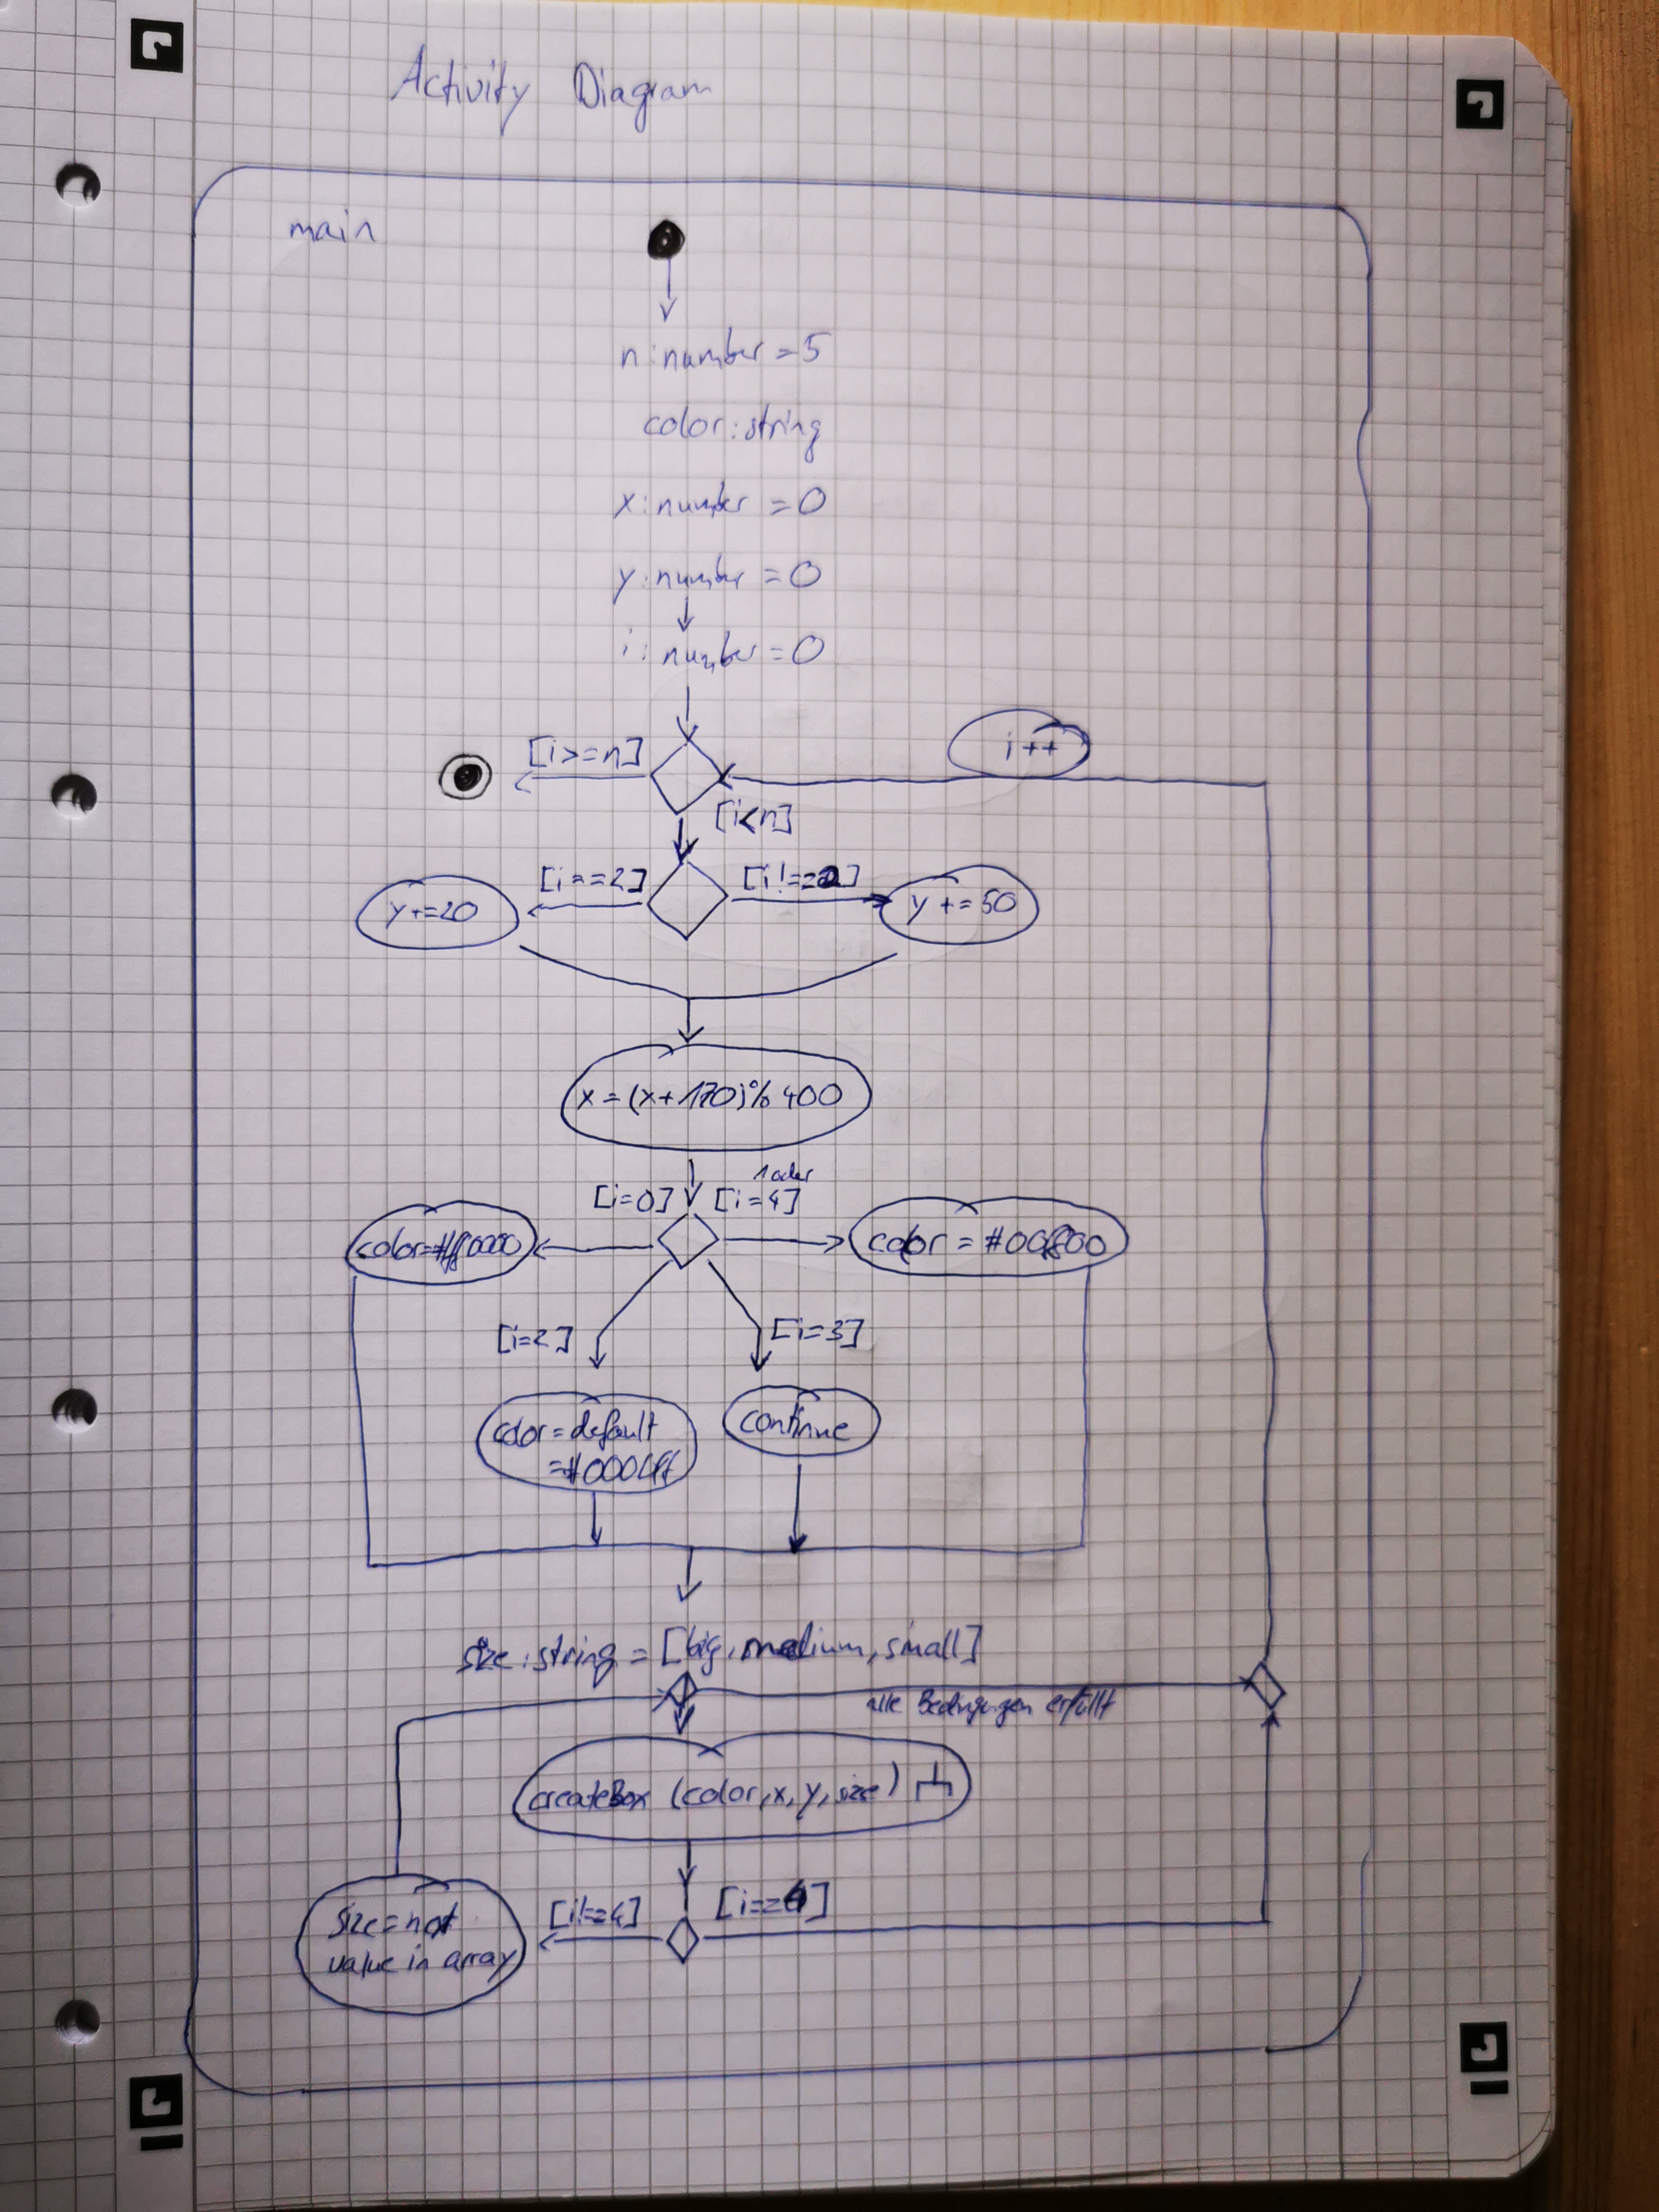 Activity Diagram
main
n:number=5
color:string
x:number=0
y:number=0
i:number=0
[i>=n]
i++
[i<n]
[i==2]
[i!=2]
y+=20
y+=50
x=(x+170)%400
1 oder
[i=0]
[i=4]
color=#ff0000
color=#00ff00
[i=2]
[i=3]
color=default
=#0000ff
continue
size:string=[big,medium,small]
alle Bedingungen erfüllt
createBox (color,x,y,size)
[i!=4]
size=
value in array